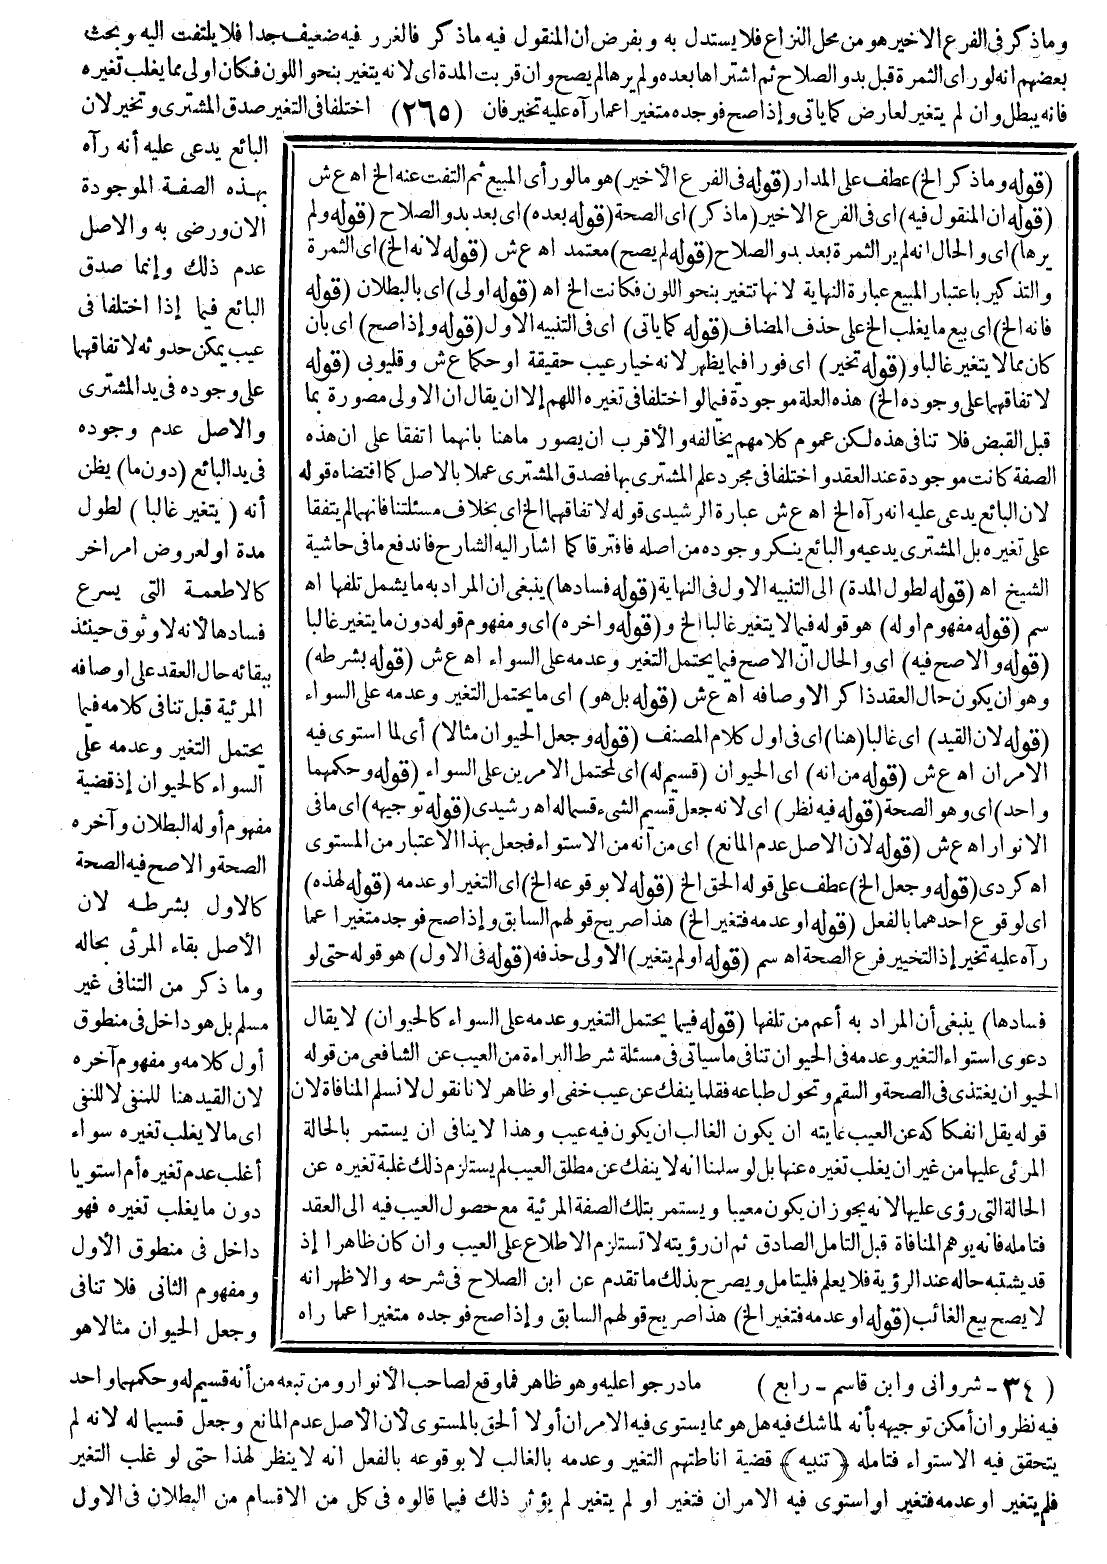 وماذكر فى الفرع الاخير هو من محل النزاع فلا يستدل به وبفرض ان المنقول فيه ماذكر فالغرر فيه ضعيف جدا فلا يلتفت اليه وبحث
بعضهم انه لو رأى الثمرة قبل بدو الصلاح ثم اشتراها بعده ولم يرها لم يصح وان قربت المدة اى لانه يتغير بنحو اللون فكان اولى مما يغلب تغيره
فانه يبطل وان لم يتغير لعارض كما ياتى واذا صح فوجده متغيرا عما رآه عليه تخير فان (٢٦٥) اختلفا فى التغير صدق المشترى وتخير لان
البائع يدعى عليه أنه رآه
بهذه الصفة الموجودة
الان ورضى به والاصل
عدم ذلك وإنما صدق
البائع فيما إذا اختلفا فى
عيب يمكن حدوثه لاتفاقهما
على وجوده فى يد المشترى
والاصل عدم وجوده
فى يد البائع (دون ما) يظن
أنه (يتغير غالبا) لطول
مدة او لعروض امر اخر
كالاطعمة التى يسرع
فسادها لأنه لا وثوق حينئذ
ببقائه حال العقد على اوصافه
المرئية قبل تنافى كلامه فيما
يحتمل التغير وعدمه على
السواء كالحيوان إذ قضية
مفهوم أوله البطلان وآخره
الصحة والاصح فيه الصحة
كالاول بشرطه لان
الأصل بقاء المرئى بحاله
وما ذكر من التنافى غير
مسلم بل هو داخل فى منطوق
أول كلامه ومفهوم آخره
لان القيد هنا للمنفى لا للنفى
اى ما لا يغلب تغيره سواء
أغلب عدم تغيره أم استويا
دون ما يغلب تغيره فهو
داخل فى منطوق الأول
ومفهوم الثانى فلا تنافى
وجعل الحيوان مثالا هو
(قوله وماذكر الخ) عطف على المدار (قوله فى الفرع الأخير) هو مالو رأى المبيع ثم التفت عنه الخ اه ع ش
(قوله ان المنقول فيه) اى فى الفرع الاخير (ماذكر) اى الصحة (قوله بعده) اى بعد بدو الصلاح (قوله ولم
يرها) اى والحال انه لم ير الثمرة بعد بدو الصلاح (قوله لم يصح) معتمد اه ع ش (قوله لانه الخ) اى الثمرة
والتذكير باعتبار المبيع عبارة النهاية لانها تتغير بنحو اللون فكانت الخ اه (قوله اولى) اى بالبطلان (قوله
فانه الخ) اى بيع ما يغلب الخ على حذف المضاف (قوله كما ياتى) اى فى التنبيه الاول (قوله وإذا صح) اى بان
كان مما لا يتغير غالبا و (قوله تخير) اى فورا فيما يظهر لانه خيار عيب حقيقة او حكما ع ش وقليوبى (قوله
لاتفاقهما على وجوده الخ) هذه العلة موجودة فيما لو اختلفا فى تغيره اللهم إلا ان يقال ان الاولى مصورة بما
قبل القبض فلا تنافى هذه لكن عموم كلامهم يخالفه والاقرب ان يصور ماهنا بانهما اتفقا على ان هذه
الصفة كانت موجودة عند العقد واختلفا فى مجرد علم المشترى بها فصدق المشترى عملا بالاصل كما اقتضاه قوله
لان البائع يدعى عليه انه رآه الخ اه ع ش عبارة الرشيدى قوله لاتفاقهما الخ اى بخلاف مسئلتنا فانهما لم يتفقا
على تغيره بل المشترى يدعيه والبائع ينكر وجوده من اصله فافترقا كما اشار اليه الشارح فاندفع مافى حاشية
الشيخ اه (قوله لطول المدة) الى التنبيه الاول فى النهاية (قوله فسادها) ينبغى ان المراد به ما يشمل تلفها اه
سم (قوله مفهوم اوله) هو قوله فيما لا يتغير غالبا الخ و (قوله واخره) اى ومفهوم قوله دون ما يتغير غالبا
(قوله والاصح فيه) اى والحال ان الاصح فيما يحتمل التغير وعدمه على السواء اه ع ش (قوله بشرطه)
وهو ان يكون حال العقد ذاكر الاوصافه اه ع ش (قوله بل هو) اى ما يحتمل التغير وعدمه على السواء
(قوله لان القيد) اى غالبا (هنا) اى فى اول كلام المصنف (قوله وجعل الحيوان مثالا) أى لما استوى فيه
الامران اه ع ش (قوله من انه) اى الحيوان (قسيم له) اى لمحتمل الامرين على السواء (قوله وحكمهما
واحد) اى وهو الصحة (قوله فيه نظر) اى لانه جعل قسيم الشىء قسما له اه رشيدى (قوله توجيهه) اى مافى
الانوار اه ع ش (قوله لان الاصل عدم المانع) اى من أنه من الاستواء فجعل بهذا الاعتبار من المستوى
اه كردى (قوله وجعل الخ) عطف على قوله الحق الخ (قوله لا بوقوعه الخ) اى التغير او عدمه (قوله لهذه)
اى لوقوع احدهما بالفعل (قوله او عدمه فتغير الخ) هذا صريح قولهم السابق وإذا صح فوجد متغيرا عما
رآه عليه تخير إذ التخيير فرع الصحة اه سم (قوله او لم يتغير) الاولى حذفه (قوله فى الاول) هو قوله حتى لو
فسادها) ينبغى أن المراد به أعم من تلفها (قوله فيما يحتمل التغير وعدمه على السواء كالحيوان) لا يقال
دعوى استواء التغير وعدمه فى الحيوان تنافى ماسياتى فى مسئلة شرط البراءة من العيب عن الشافعى من قوله
الحيوان يغتذى فى الصحة والسقم وتحول طباعه فقلما ينفك عن عيب خفى او ظاهر لانا نقول لا نسلم المنافاة لان
قوله يقل انفكاكه عن العيب غايته ان يكون الغالب ان يكون فيه عيب وهذا لا ينافى ان يستمر بالحالة
المرئى عليها من غير ان يغلب تغيره عنها بل لو سلمنا انه لا ينفك عن مطلق العيب لم يستلزم ذلك غلبة تغيره عن
الحالة التى رؤى عليها لانه يجوز ان يكون معيبا ويستمر بتلك الصفة المرئية مع حصول العيب فيه الى العقد
فتامله فانه يوهم المنافاة قبل التامل الصادق ثم ان رؤيته لا تستلزم الاطلاع على العيب وان كان ظاهرا إذ
قد يشتبه حاله عند الرؤية فلا يعلم فليتامل ويصرح بذلك ماتقدم عن ابن الصلاح فى شرحه والاظهر انه
لا يصح بيع الغائب (قوله او عدمه فتغير الخ) هذا صريح قولهم السابق وإذا صح فوجده متغيرا عما راه
(٣٤ - شروانى وابن قاسم - رابع) مادرجوا عليه وهو ظاهر فما وقع لصاحب الأنوار ومن تبعه من أنه قسيم له وحكمهما واحد
فيه نظر وان أمكن توجيهه بأنه لما شك فيه هل هو مما يستوى فيه الامران أو لا ألحق بالمستوى لأن الأصل عدم المانع وجعل قسيما له لانه لم
يتحقق فيه الاستواء فتامله (تنبيه) قضية اناطتهم التغير وعدمه بالغالب لا بوقوعه بالفعل انه لا ينظر لهذا حتى لو غلب التغير
فلم يتغير او عدمه فتغير او استوى فيه الامران فتغير او لم يتغير لم يؤثر ذلك فيما قالوه فى كل من الاقسام من البطلان فى الاول